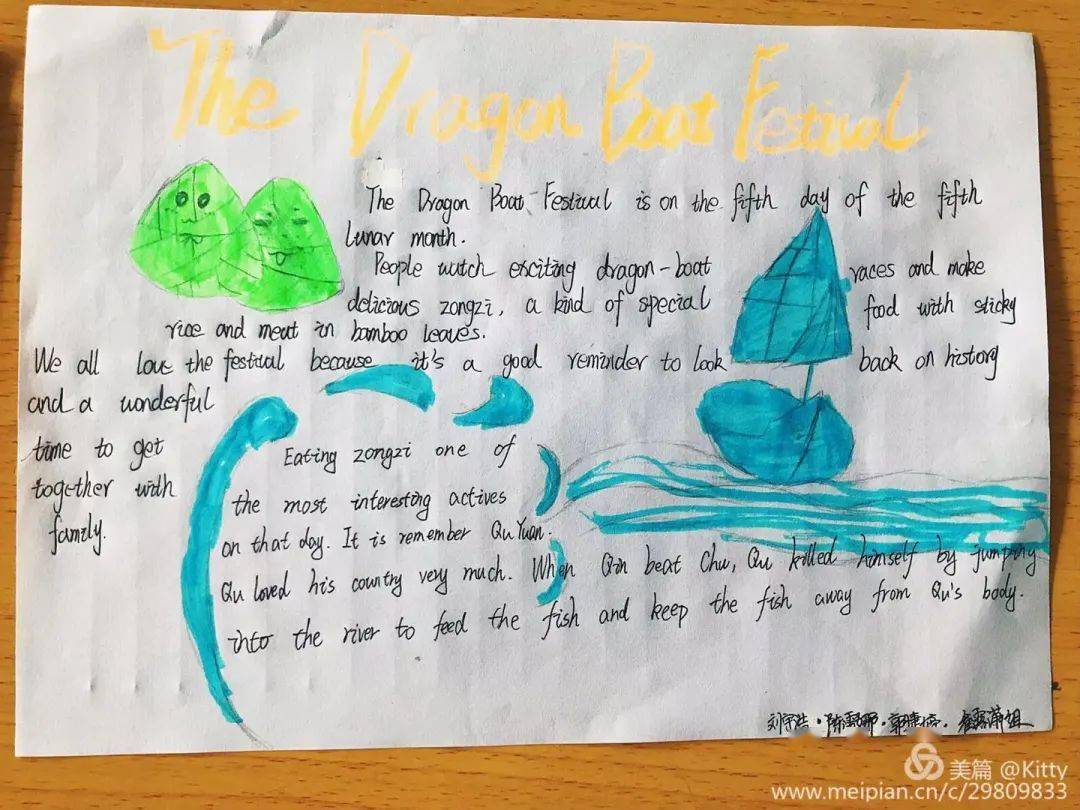 The Dragon Boat Festival
The Dragon Boat Festival is on the fifth day of the fifth
lunar month.
People watch exciting dragon-boat races and make
delicious zongzi, a kind of special food with sticky
rice and meat in bamboo leaves.
We all love the festival because it's a good reminder to look back on history
and a wonderful
time to get
together with
family.
Eating zongzi one of
the most interesting actives
on that day. It is remember Qu Yuan.
Qu loved his country very much. When Qin beat Chu, Qu killed himself by jumping
into the river to feed the fish and keep the fish away from Qu's body.
美篇 @Kitty
www.meipian.cn/c/29809833